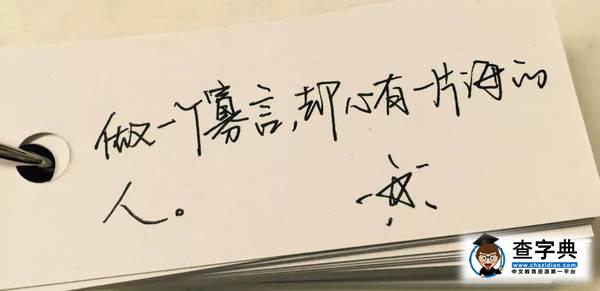 做一个寡言，却心有一片海的
人。
查字典
www.chazidian.com
中文教育资源第一平台